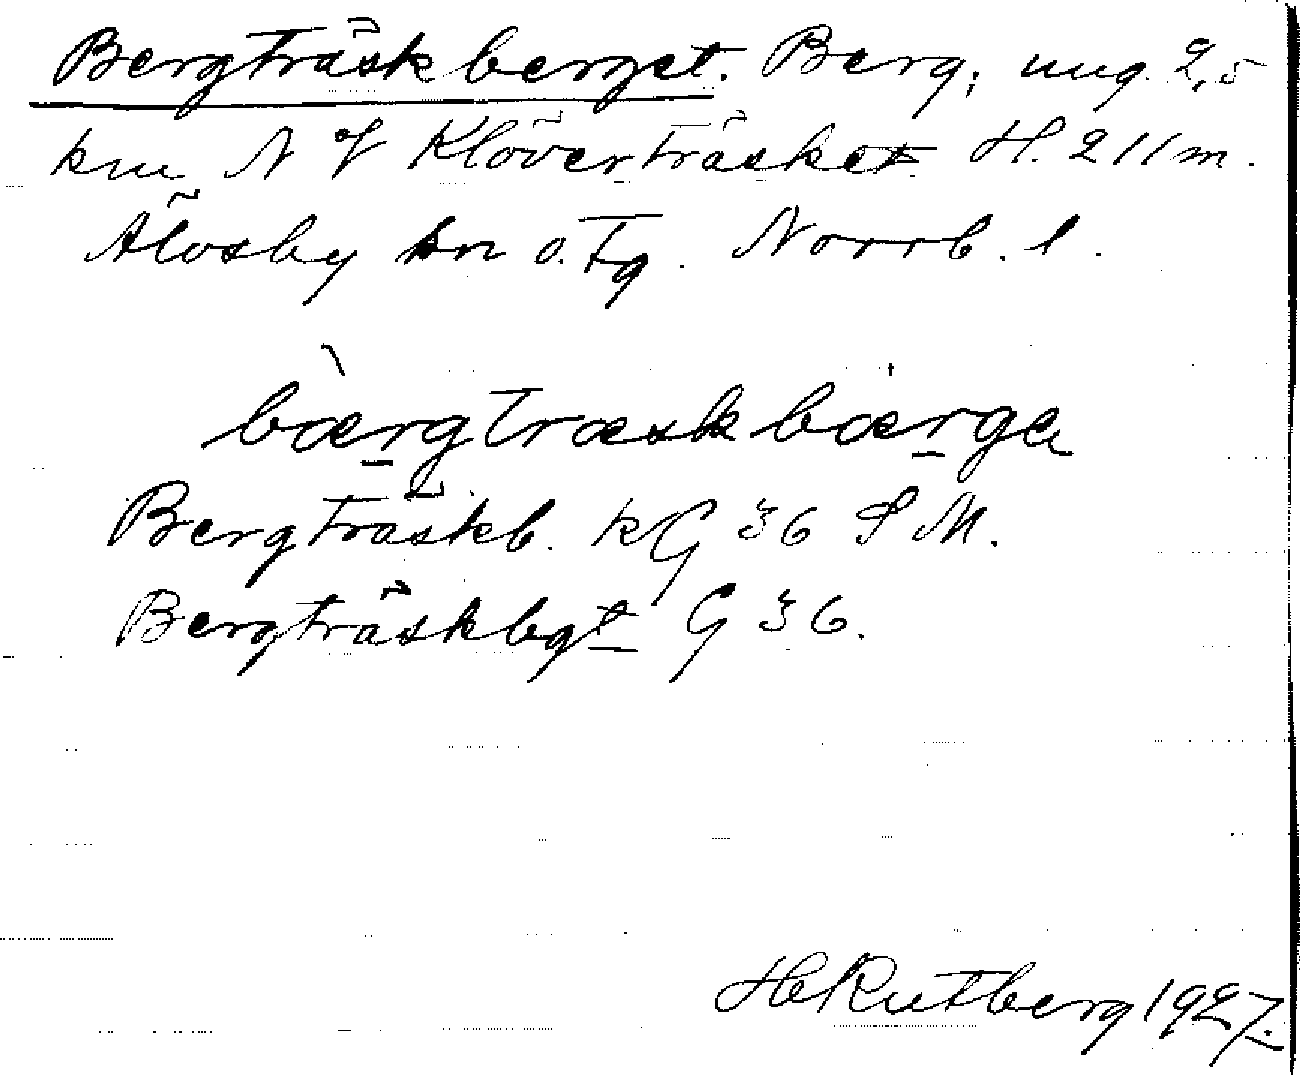 Bergträskberget. Berg, ung. 2,5
km N of Klöverträsket. H. 211 m.
Älvsby sn o. Tg. Norrb. l.
bærgtræskbærge
Bergträskb. kG 36 S M.
Bergträskbgt G 36.
H Rutberg 1927.